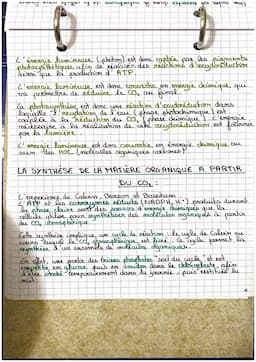 L'énergie lumineuse (photon) est donc captée par les pigments
photosynthétiques afin de réaliser des réactions d'oxydoréduction
ainsi que la production d'ATP.
L'énergie lumineuse est donc convertie en énergie chimique, qui
va permettre de réduire le CO₂ au final.
La photosynthèse est donc une réaction d'oxydoréduction dans
laquelle l'oxydation de l'eau (phase photochimique) est
couplée à la réduction du CO₂ (phase chimique). L'énergie
nécessaire à la réalisation de cette oxydoréduction est fournie
par la lumière.
L'énergie lumineuse est donc convertie en énergie chimique au
sein des MOC (molécules organiques carbonées).
LA SYNTHÈSE DE LA MATIÈRE ORGANIQUE A PARTIR
DU CO₂
L'expérience de Calvin, Benson et Bassham
L'ATP et les coenzymes réduits (NADPH, H⁺) produits durant
la phase claire sont des sources d'énergie chimiques que la
cellule utilise pour synthétiser des molécules organiques à partir
du CO₂ atmosphérique.
Cette synthèse implique un cycle de réaction : le cycle de Calvin au
cours duquel le CO₂ atmosphérique est fixé. Ce cycle permet la
synthèse d'un ensemble de molécules organiques.
En effet, une partie des trioses phosphates sort du cycle et est
convertie en glucose puis en amidon dans le chloroplaste, afin
d'être stocké temporairement dans la journée, puis restitué la
nuit